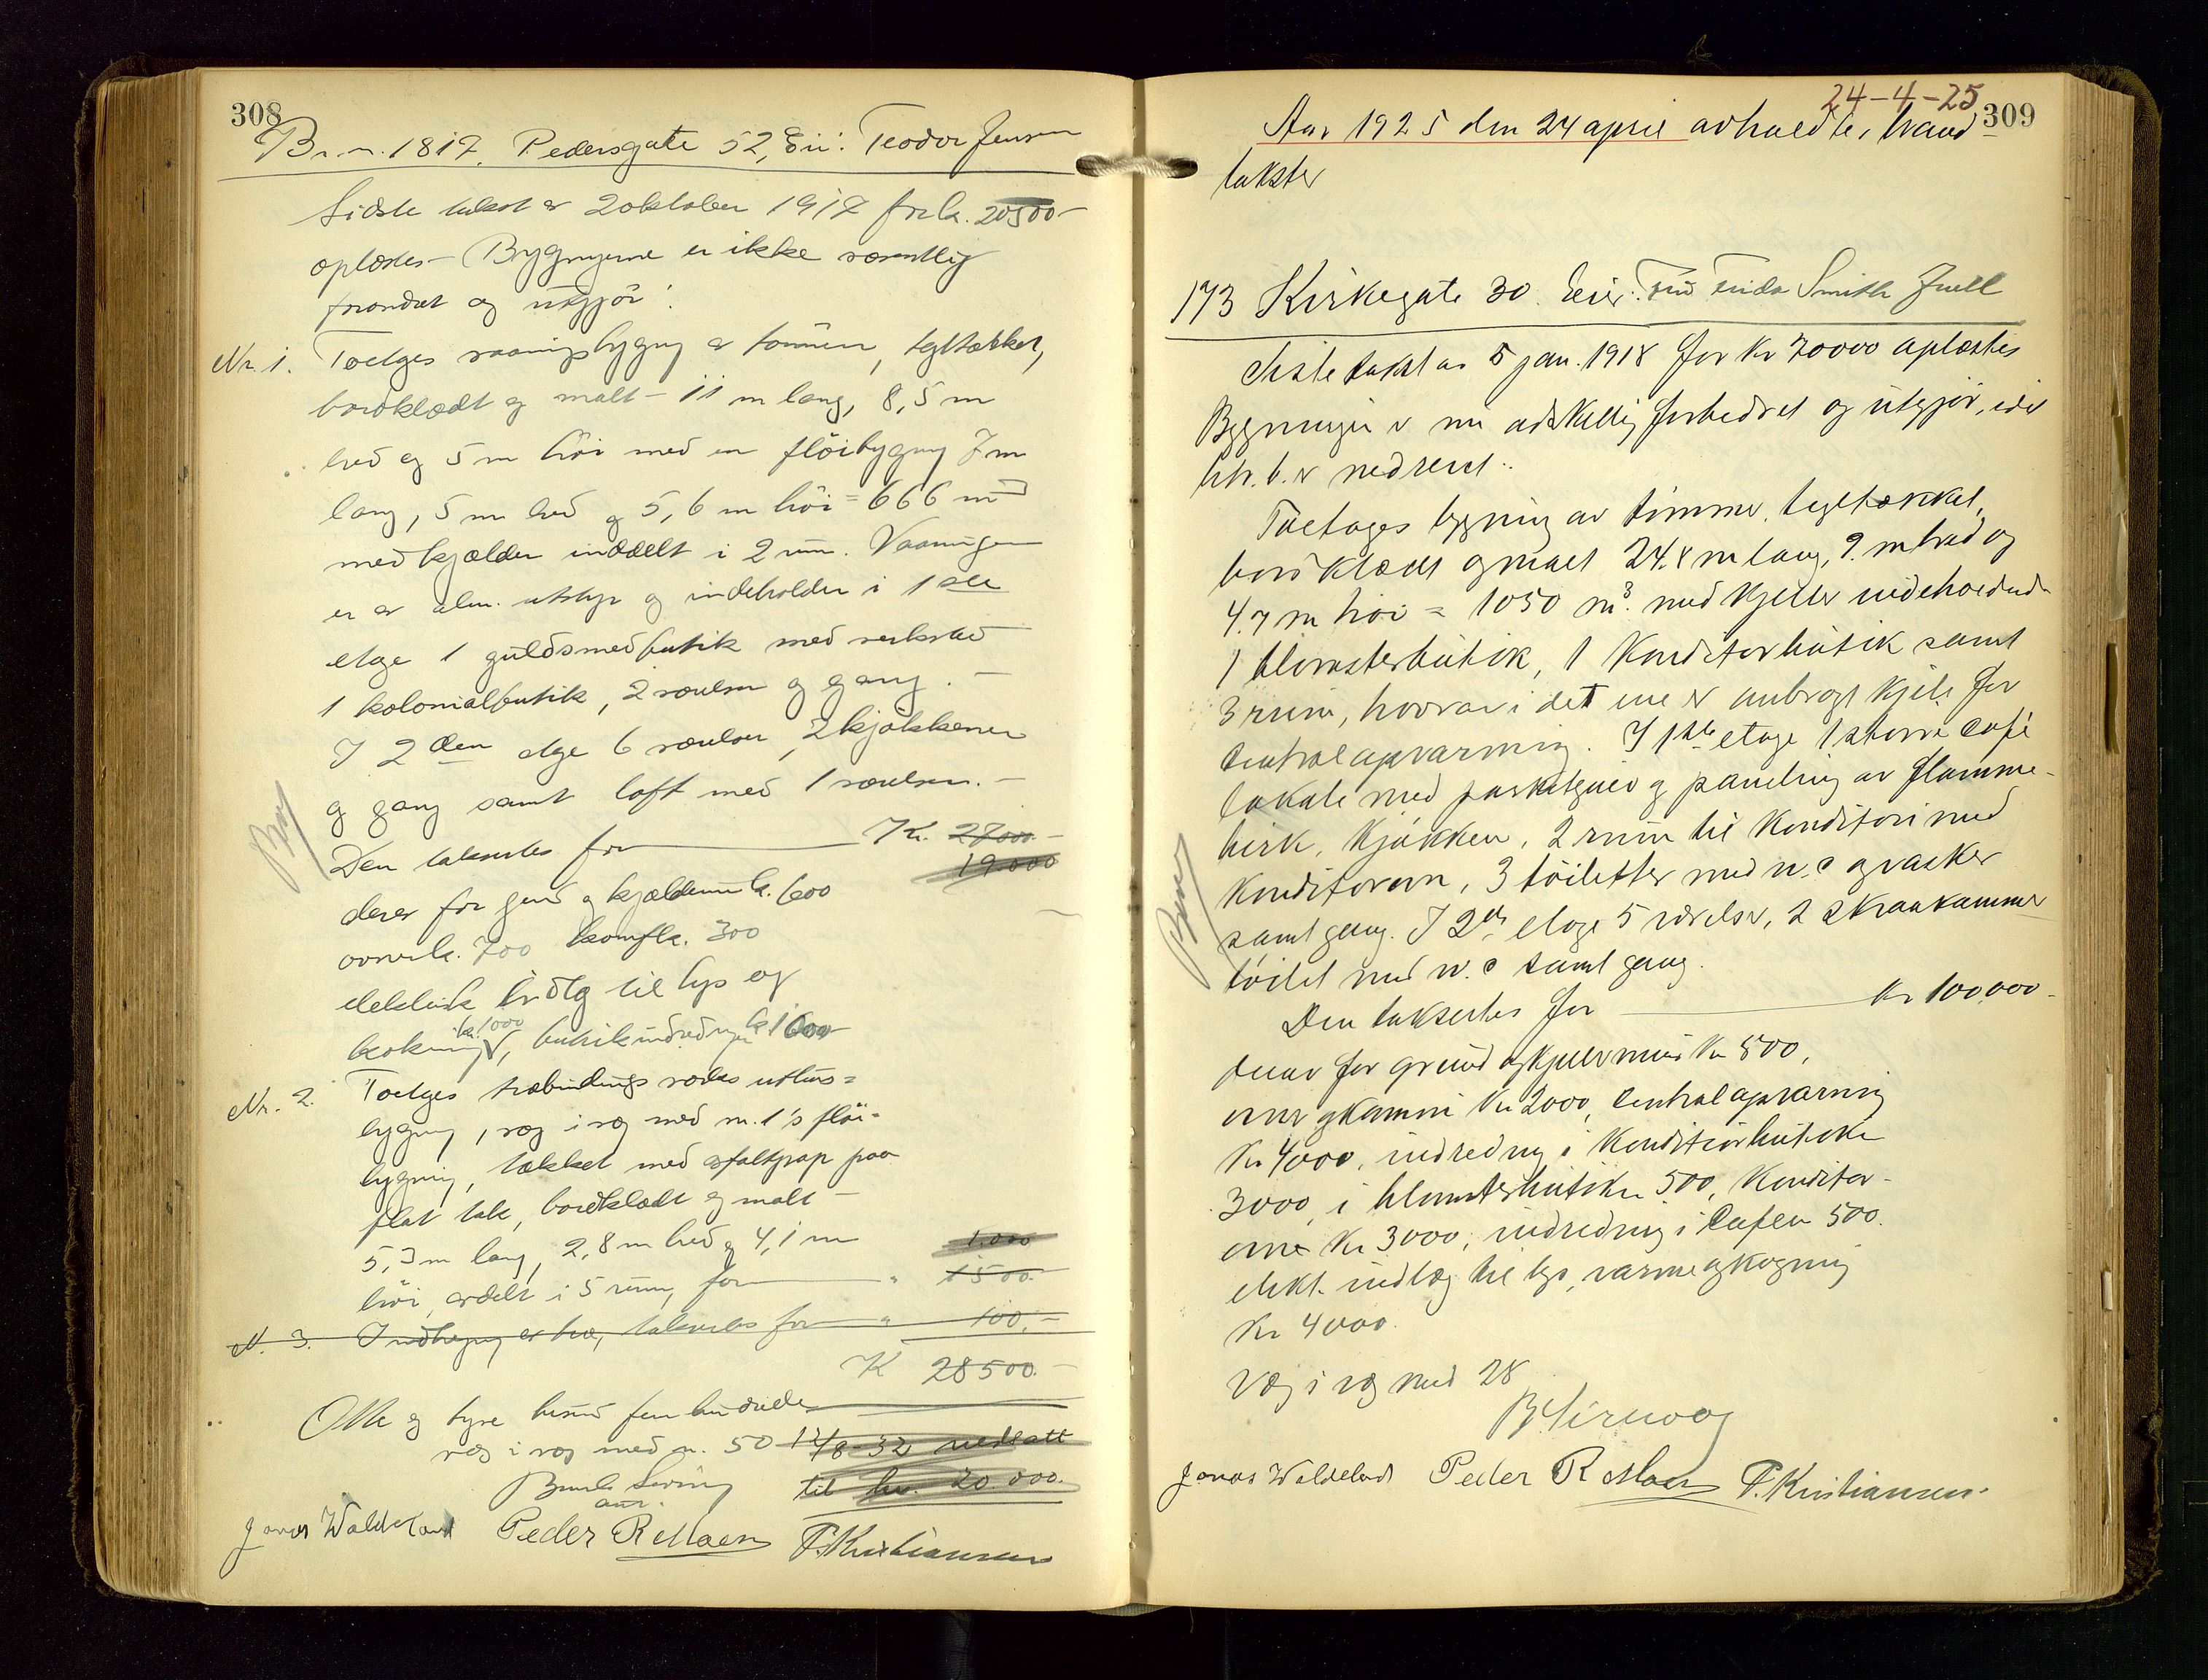 308
Br. nr. 1817. Pedersgate 52, Eier: Teodor Jensen
Sidste takst av 2 oktober 1917 for kr. 20500 –
oplæstes – Bygningerne er ikke væsentlig
forandret og utgjör:
Nr. 1. Toetages vaaningsbygning av tömmer, tegltækket,
bordklædt og malt – 11 m lang, 8,5 m
bred og 5 m höi med en flöibygning 7 m
lang, 5 m bred og 5,6 m höi = 666 m³
med kjælder inddelt i 2 rum. Vaaningen
er av alm. utstyr og indeholder i 1ste
etage 1 guldsmedbutik med verksted
1 kolonialbutik, 2 værelser og gang. –
I 2den etge 6 værelser, 2 kjøkkener
og gang samt loft med 1 værelse. –
Den takseres for Kr. 27000. –
19.000
derav for grund og kjældermur kr. 600
ovner kr. 700 komf kr. 300
elektrisk indlg til lys og
kokning kr. 1000, butikindredning kr 1600
Nr. 2. Toetges træbindings utlus=
bygning, væg i væg med nr. 1's flöi-
bygning, tækket med asfaltpap paa
flat tak, bordklædt og malt –
5,3 m lang, 2,8 m bred og 4,1 m 1.000
höi, avdelt i 5 rum, for " 1500.
N. 3. Indhegning av træ, takseres for " 100. –
K 28500. –
Otte og tyve tusind fem hundrede
væg i væg med nr. 50 12/8-32 nedsatt
til kr. 20.000.
Jonas Waldeland Peder R Moen F. Kristiansen
24-4-25
309
Aar 1925 den 24 april avholdtes brand-
takster
173 Kirkegate 30. Eier: Smith Juell
Siste takst av 5 jan. 1918 for kr 70000 oplæstes
Bygningen er nu adskillig forbedret og utgjör, idet
litr. b. er nedrevet.
Toetages bygning av tömmer, tegltækket,
bordklædt og malt 24.8 m lang, 9. m bred og
4.7 m höi = 1050 m³. med kjeller indeholdende
1 blomsterbutik, 1 Konditorbutik samt
3 rum, hvorav i det ene er anbragt kjele for
Centralopvarming. I 1ste etage 1 större Café
lokale med parketgulv og paneling av flamme-
birk, kjökken, 2 rum til Konditori med
Konditorovn, 3 töiletter med w.c og vasker
samt gang. I 2den etage 5 værelser, 2 skraakammer
töilet med w.c samt gang.
Den takseres for kr 100.000 –
derav for grund og kjellermur kr 800,
ovner og kamin kr 2000, Centralopvarming
kr 4000, indredning i Konditorbutiken
3000, i blomsterbutiken 500, Konditor-
ovne kr 3000, indredning i Cafeen 500.
elekt. indlæg til lys, varme og kogning
kr 4000.
Væg i væg med 28
Jonas Waldeland Peder R Moen F. Kristiansen